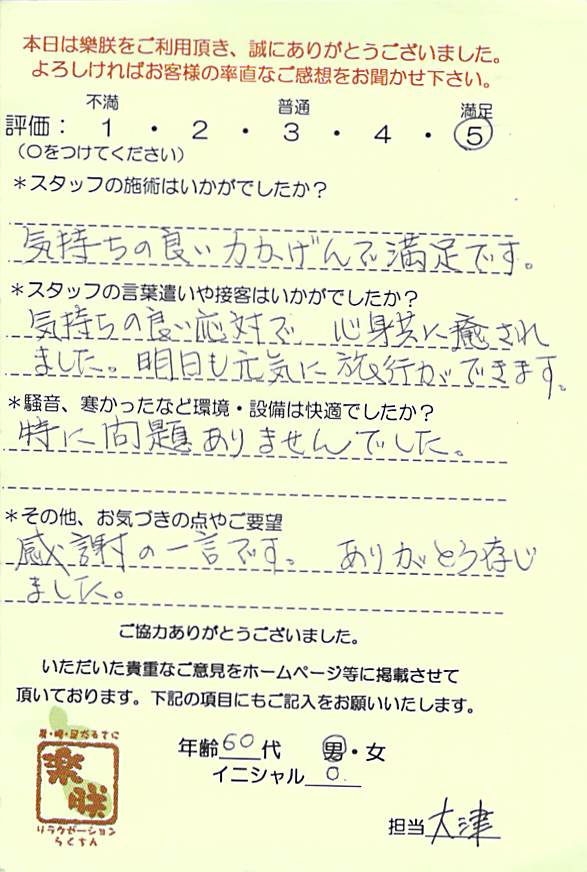 本日は樂朕をご利用頂き、誠にありがとうございました。
よろしければお客様の率直なご感想をお聞かせ下さい。
不満 普通 満足
評価： 1 ・ 2 ・ 3 ・ 4 ・ 5
（○をつけてください）
＊スタッフの施術はいかがでしたか？
気持ちの良い力かげんで満足です。
＊スタッフの言葉遣いや接客はいかがでしたか？
気持ちの良い応対で 心身共に癒され
ました。明日も元気に旅行ができます。
＊騒音、寒かったなど環境・設備は快適でしたか？
特に問題ありませんでした。
＊その他、お気づきの点やご要望
感謝の一言です。 ありがとう存じ
ました。
ご協力ありがとうございました。
いただいた貴重なご意見をホームページ等に掲載させて
頂いております。下記の項目にもご記入をお願いいたします。
年齢 60 代 男・女
イニシャル O.
担当 大津
樂朕
リラクゼーション
らくちん